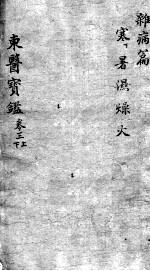 雜病篇
寒下 暑 濕 燥 火
東醫寶鑑 卷三 上下